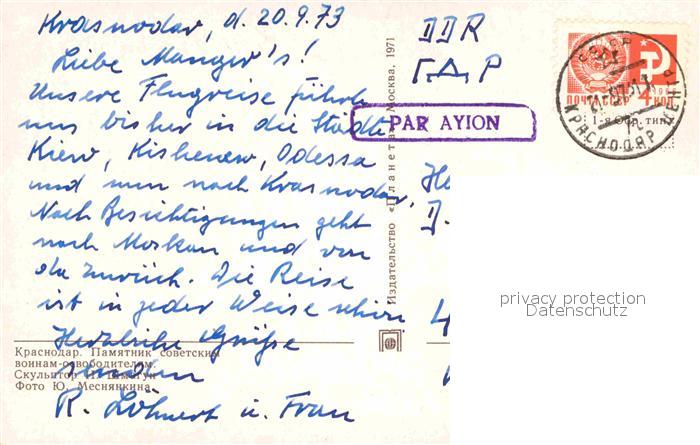 Krasnodar, d. 20.9.73
Liebe Manger's!
Unsere Flugreise führte
uns bisher in die Städte
Kiew, Kishenew, Odessa
und nun nach Krasnodar,
Nach Besichtigungen geht
nach Moskau und von
da zurück. Die Reise
ist in jeder Weise schön
Herzliche Grüße
senden
R. Löhnert u. Frau
Краснодар. Памятник советским
воинам-освободителям.
Скульптор И. Шмагун
Фото Ю. Меснянкина
Издательство «Планета» Москва, 1971
DDR
ГДР
PAR AVION
СССР
ПОЧТА СССР 4 КОП.
КРАСНОДАР
He
D.
4
privacy protection
Datenschutz